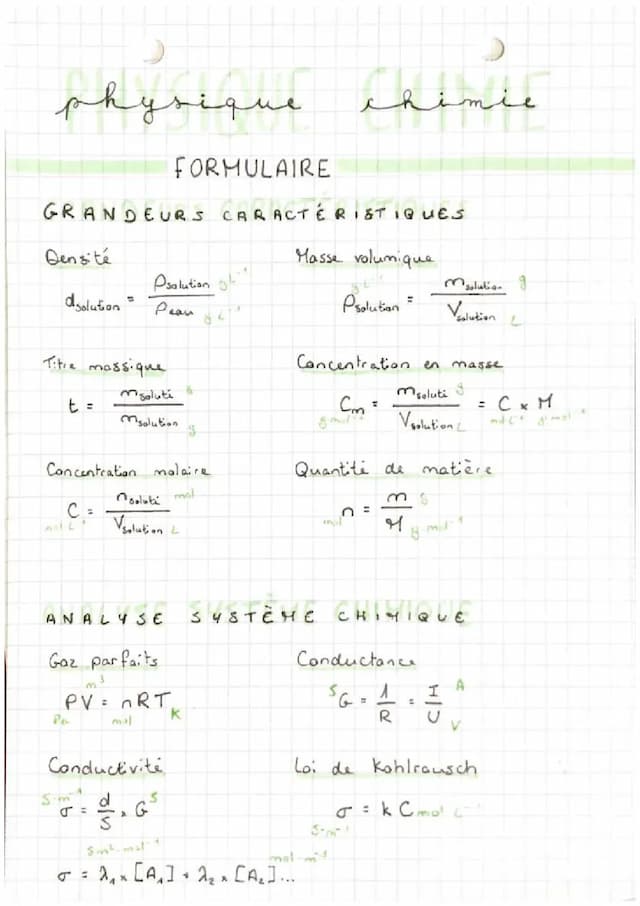 PHYSIQUE CHIMIE
physique chimie
FORMULAIRE
GRANDEURS CARACTÉRISTIQUES
Densité
d_solution = ρ_solution g L⁻¹ / ρ_eau g L⁻¹
Masse volumique
g L⁻¹ ρ_solution = m_solution g / V_solution L
Titre massique
t = m_soluté g / m_solution g
Concentration en masse
g·mol⁻¹ C_m = m_soluté g / V_solution L = C × M mol L⁻¹ g·mol⁻¹
Concentration molaire
mol L⁻¹ C = n_soluté mol / V_solution L
Quantité de matière
mol n = m g / M g·mol⁻¹
ANALYSE SYSTÈME CHIMIQUE
Gaz parfaits
PV = nRT Pa m³ mol K
Conductance
S G = 1/R = I/U A V
Conductivité
S·m⁻¹ σ = d/S × G S
Loi de Kohlrausch
σ = k C mol L⁻¹ S·m⁻¹
S·m²·mol⁻¹ mol·m⁻³
σ = λ₁ × [A₁] + λ₂ × [A₂]...